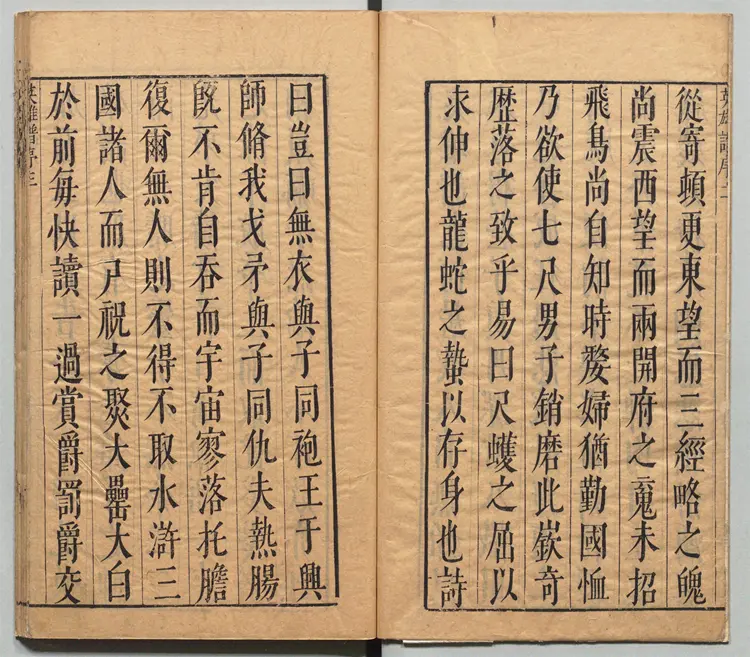 英雄譜序二
從寄頓更東望而三經略之魄
尚震西望而兩開府之䰟未招
飛鳥尚自知時嫠婦猶勤國恤
乃欲使七尺男子銷磨此嶔奇
歷落之致乎易曰尺蠖之屈以
求伸也龍蛇之蟄以存身也詩
曰豈曰無衣與子同袍王于興
師脩我戈矛與子同仇夫熱腸
既不肯自吞而宇宙寥落托膽
復爾無人則不得不取水滸三
國諸人而尸祝之聚大罍大白
於前每快讀一過賞爵罰爵交
英雄譜序三